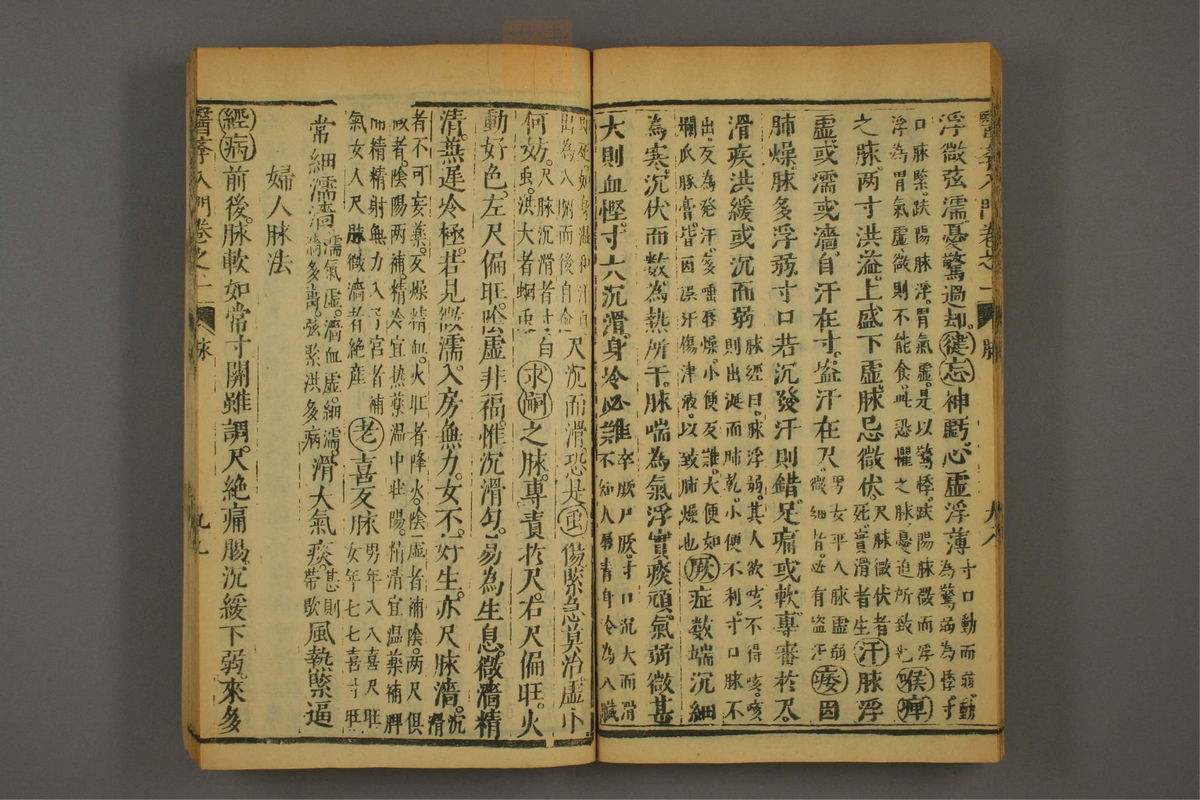 浮微弦濡憂驚過却。健忘神虧。心虛浮薄寸口動而弱動為驚弱為悸寸
口脉緊。趺陽脉浮。胃氣虛。是以驚悸。趺陽脉微而浮浮為胃氣虛微則不能食。此恐懼之脉憂迫所致也喉痺
之脉。两寸洪溢。上盛下虛。脉忌微伏。尺脉微伏者死。實滑者生汗脉浮
虛或濡或濇。自汗在寸。盜汗在尺。男女平人脉虛弱微細者。必有盜汗痿因
肺燥脉多浮弱寸口若沉發汗則錯。足痛或軟。專審於尺。
滑疾洪緩或沉而弱脉經曰。脉浮弱。其人欲咳不得咳。咳則出涎而肺乾。小便不利。寸口脉不
出。反為發汗。多唾唇燥。小便反難。大便如爛瓜豚膏。皆因誤汗傷津液。以致肺燥也厥症數端沉細
為寒。沉伏而數。為熱所干。脉喘為氣浮實痰頑。氣弱微甚
大則血慳。寸大沉滑。身冷必難卒厥尸厥。寸口沉大而滑不知人唇青身冷為入臟
即死如身溫和汗自出為入腑而後自愈尺沉而滑恐是虫傷緊急莫治虛小
何妨。尺脉沉滑者寸白虫。洪大者蛔虫求嗣之脉。專責於尺。右尺偏旺。火
動好色。左尺偏旺。陰虛非福。惟沉滑勻。易為生息。微濇精
清。兼遲冷極。若見微濡。入房無力。女不好生。亦尺脉濇。沉滑
者不可妄藥。反燥精血。火旺者降火。陰虛者補陰。两尺俱微者。陰陽两補。精冷宜热藥温中壯陽。精清宜温藥補脾
而精精射無力入子宮者補氣女人尺脉微濇者絕産老喜反脉男年八八喜尺旺女年七七喜寸旺
常細濡濇濡氣虛。濇血虛。細濡濇多壽。弦緊洪多病滑大氣痰甚則帶歇風熱緊逼
婦人脉法
經病前後。脉軟如常寸關雖調。尺絶痛腸。沉緩下弱。來多
醫學入門卷之一 脉 九九